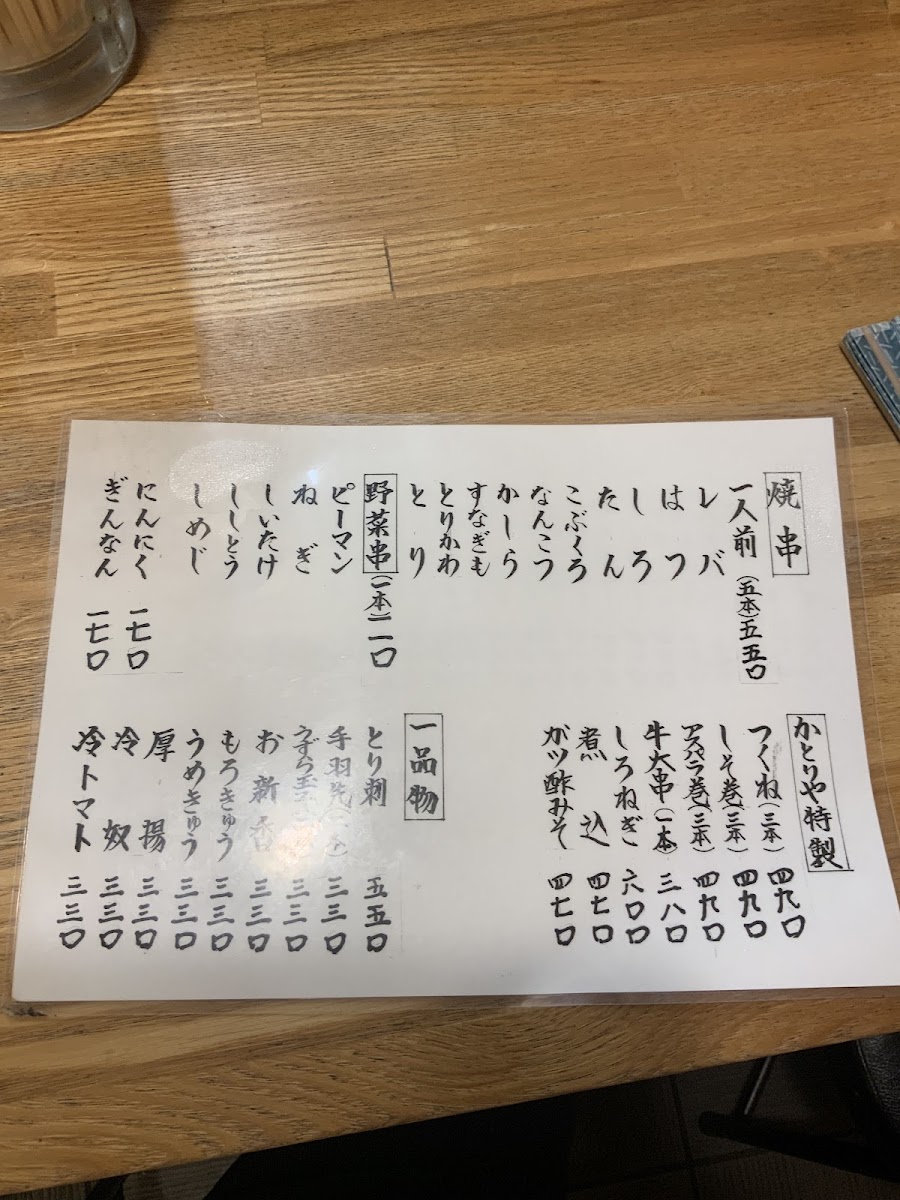 焼串
一人前(五本)五五〇
レバ
はつ
しろ
たん
こぶくろ
なんこつ
かしら
すなぎも
とりかわ
とり
野菜串(一本)一一〇
ピーマン
ねぎ
しいたけ
ししとう
しめじ
にんにく 一七〇
ぎんなん 一七〇
かとりや特製
つくね(三本) 四九〇
しそ巻(三本) 四九〇
アスパラ巻(三本) 四九〇
牛大串(一本) 三八〇
しろねぎ 六〇〇
煮込 四七〇
ガツ酢みそ 四七〇
一品物
とり刺 五五〇
手羽先 三三〇
うずら玉子 三三〇
お新香 三三〇
もろきゅう 三三〇
うめきゅう 三三〇
厚揚 三三〇
冷奴 三三〇
冷トマト 三三〇